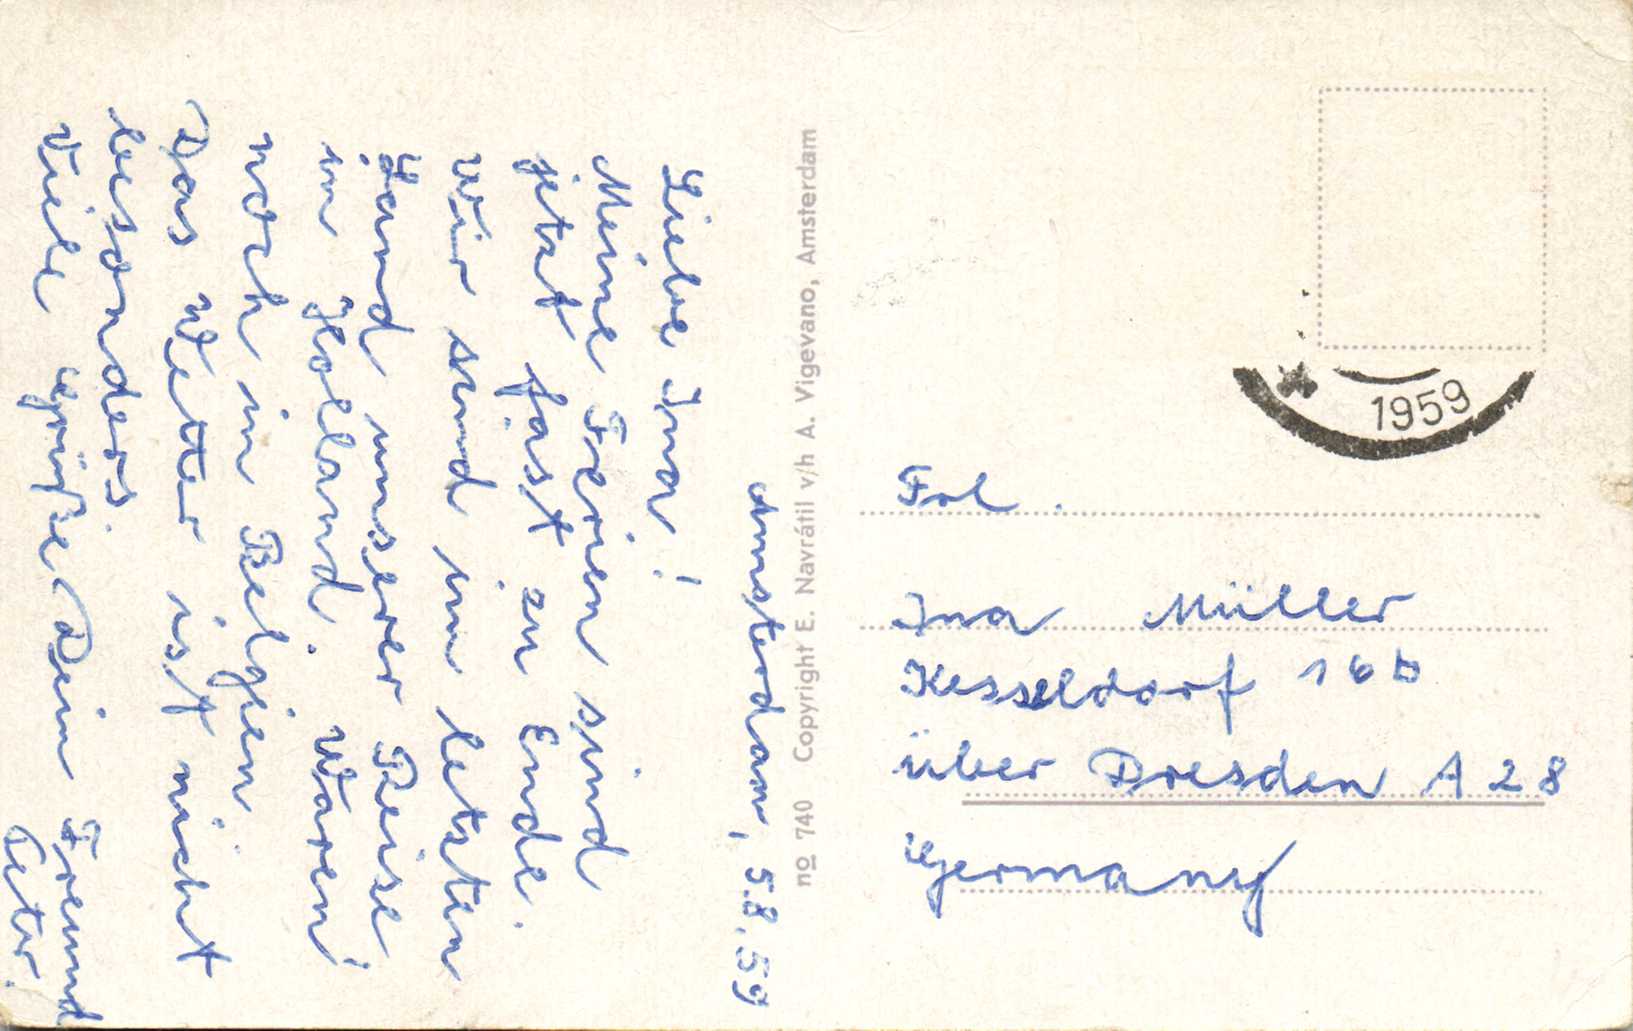 Amsterdam, 5.8.59
Liebe Ina!
Meine Ferien sind
jetzt fast zu Ende.
Wir sind im letzten
Land unserer Reise
in Holland. Waren
noch in Belgien!
Das Wetter ist nicht
besonders.
Viele Grüße Dein Freund
Peter.
nо 740 Copyright E. Navrátil v/h A. Vigevano, Amsterdam
1959
Frl.
Ina Müller
Kesseldorf 16b
über Dresden A 28
Germany